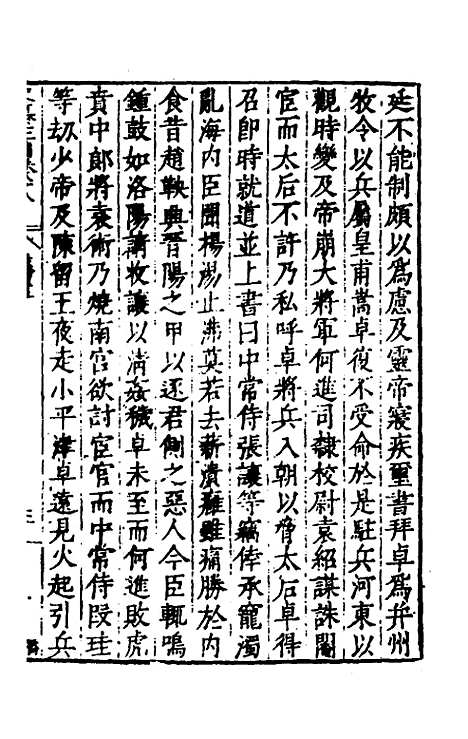 廷不能制頗以為慮及靈帝寢疾璽書拜卓為并州
牧令以兵屬皇甫嵩卓復不受命於是駐兵河東以
觀時變及帝崩大將軍何進司隸校尉袁紹謀誅閹
宦而太后不許乃私呼卓將兵入朝以脅太后卓得
召即時就道並上書曰中常侍張讓等竊倖承寵濁
亂海內臣聞揚湯止沸莫若去薪潰癰雖痛勝於內
食昔趙鞅興晉陽之甲以逐君側之惡人今臣輒鳴
鍾鼓如洛陽請收讓以清姦穢卓未至而何進敗虎
賁中郎將袁術乃燒南宮欲討宦官而中常侍段珪
等劫少帝及陳留王夜走小平津卓遠見火起引兵